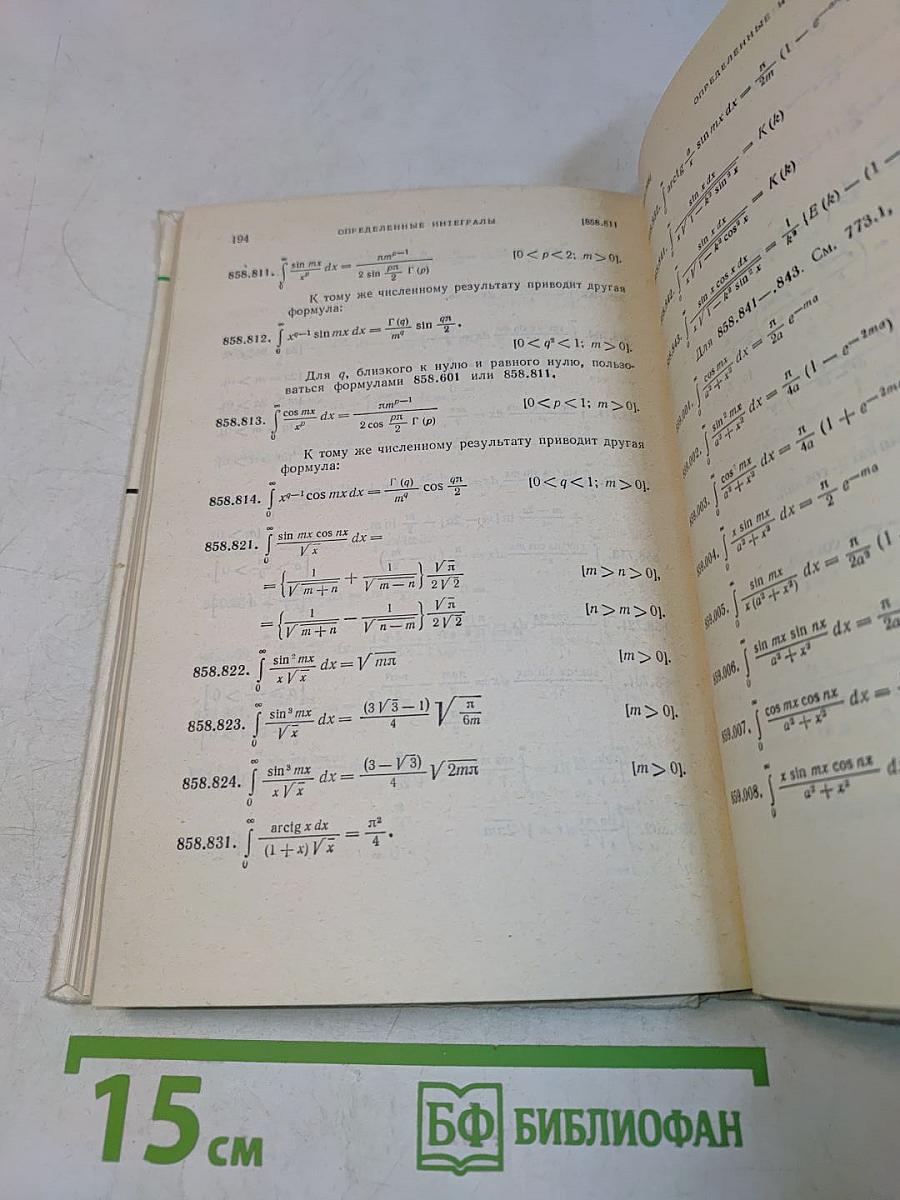 194 ОПРЕДЕЛЕННЫЕ ИНТЕГРАЛЫ [858.811
858.811. ∫₀^∞ (sin mx / x^p) dx = πm^{p−1} / (2 sin (pπ/2) Γ(p)) [0 < p < 2; m > 0].
К тому же численному результату приводит другая
формула:
858.812. ∫₀^∞ x^{q−1} sin mx dx = (Γ(q) / m^q) sin (qπ/2).
[0 < q² < 1; m > 0].
Для q, близкого к нулю и равного нулю, пользо-
ваться формулами 858.601 или 858.811.
858.813. ∫₀^∞ (cos mx / x^p) dx = πm^{p−1} / (2 cos (pπ/2) Γ(p)) [0 < p < 1; m > 0].
К тому же численному результату приводит другая
формула:
858.814. ∫₀^∞ x^{q−1} cos mx dx = (Γ(q) / m^q) cos (qπ/2) [0 < q < 1; m > 0].
858.821. ∫₀^∞ (sin mx cos nx / √x) dx =
= {1/√(m+n) + 1/√(m−n)} √π / (2√2) [m > n > 0],
= {1/√(m+n) − 1/√(n−m)} √π / (2√2) [n > m > 0].
858.822. ∫₀^∞ (sin² mx / (x√x)) dx = √(mπ) [m > 0].
858.823. ∫₀^∞ (sin³ mx / √x) dx = ((3√3 − 1) / 4) √(π / 6m) [m > 0].
858.824. ∫₀^∞ (sin³ mx / (x√x)) dx = ((3 − √3) / 4) √(2mπ) [m > 0].
858.831. ∫₀^∞ arctg x dx / ((1 + x)√x) = π² / 4.
ОПРЕДЕЛЕННЫЕ
∫ arctg (a/x) sin mx dx = (π/2m) (1 − e^{−am}
.841. ∫₀^∞ sin x dx / (x√(1 − k² sin² x)) = K(k)
.842. ∫₀^∞ sin x dx / (x√(1 − k² cos² x)) = K(k)
.843. ∫₀^∞ sin x cos x dx / (x√(1 − k² sin² x)) = (1/k²) {E(k) − (1 −
Для 858.841—.843. См. 773.1,
859.001. ∫₀^∞ (cos mx / (a² + x²)) dx = (π/2a) e^{−ma}
859.002. ∫₀^∞ (sin² mx / (a² + x²)) dx = (π/4a) (1 − e^{−2ma})
859.003. ∫₀^∞ (cos² mx / (a² + x²)) dx = (π/4a) (1 + e^{−2ma}
859.004. ∫₀^∞ (x sin mx / (a² + x²)) dx = (π/2) e^{−ma}
859.005. ∫₀^∞ (sin mx / (x(a² + x²))) dx = (π/2a²) (1
859.006. ∫₀^∞ (sin mx sin nx / (a² + x²)) dx = π/2a
859.007. ∫₀^∞ (cos mx cos nx / (a² + x²)) dx =
859.008. ∫₀^∞ (x sin mx cos nx / (a² + x²)) d
15 см
БФ БИБЛИОФАН